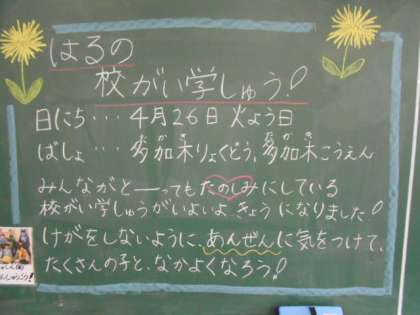 はるの
校がい学しゅう!
日にち・・・4月26日 火よう日
ばしょ・・・多加木りょくどう、多加木こうえん
みんながと――ってもたのしみにしている
校がい学しゅうがいよいよ きょう になりました!
けがをしないように、あんぜんに気をつけて、
たくさんの子と、なかよくなろう!